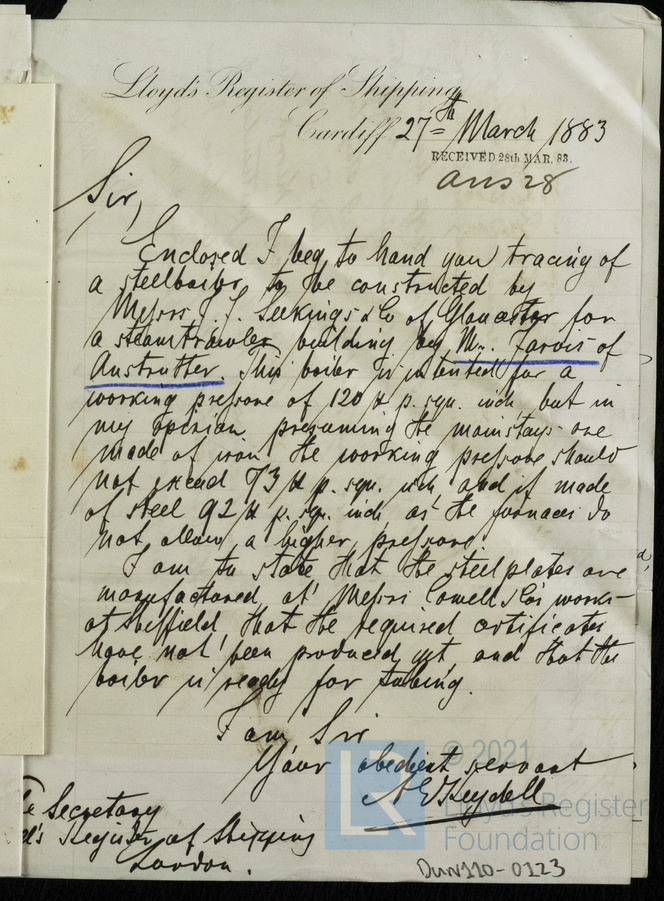 Lloyd's Register of Shipping,
Cardiff 27th March 1883
RECEIVED 28th MAR. 83.
ans 28
Sir,
Enclosed I beg to hand you tracing of
a steelboiler to be constructed by
Messrs J. J. Seekings & Co of Gloucester for
a steamtrawler building by Mr. Jarvis of
Anstruther. This boiler is intended for a
working pressure of 120 lb p. squ. inch but in
my opinion presuming the mainstays are
made of iron the working pressure should
not exceed 73 lb p. squ. inch, and if made
of steel 92 lb p. squ. inch as the furnaces do
not allow a higher pressure.
I am to state that the steelplates are
manufactured at Messrs & Co's works
at Sheffield, that the required certificates
have not been produced yet, and that the
boiler is ready for tubing.
I am, Sir
Your obedient servant
The Secretary
Lloyd's Register of Shipping
London.
© 2021
LR
Lloyd's Register
Foundation
DUN110-0123